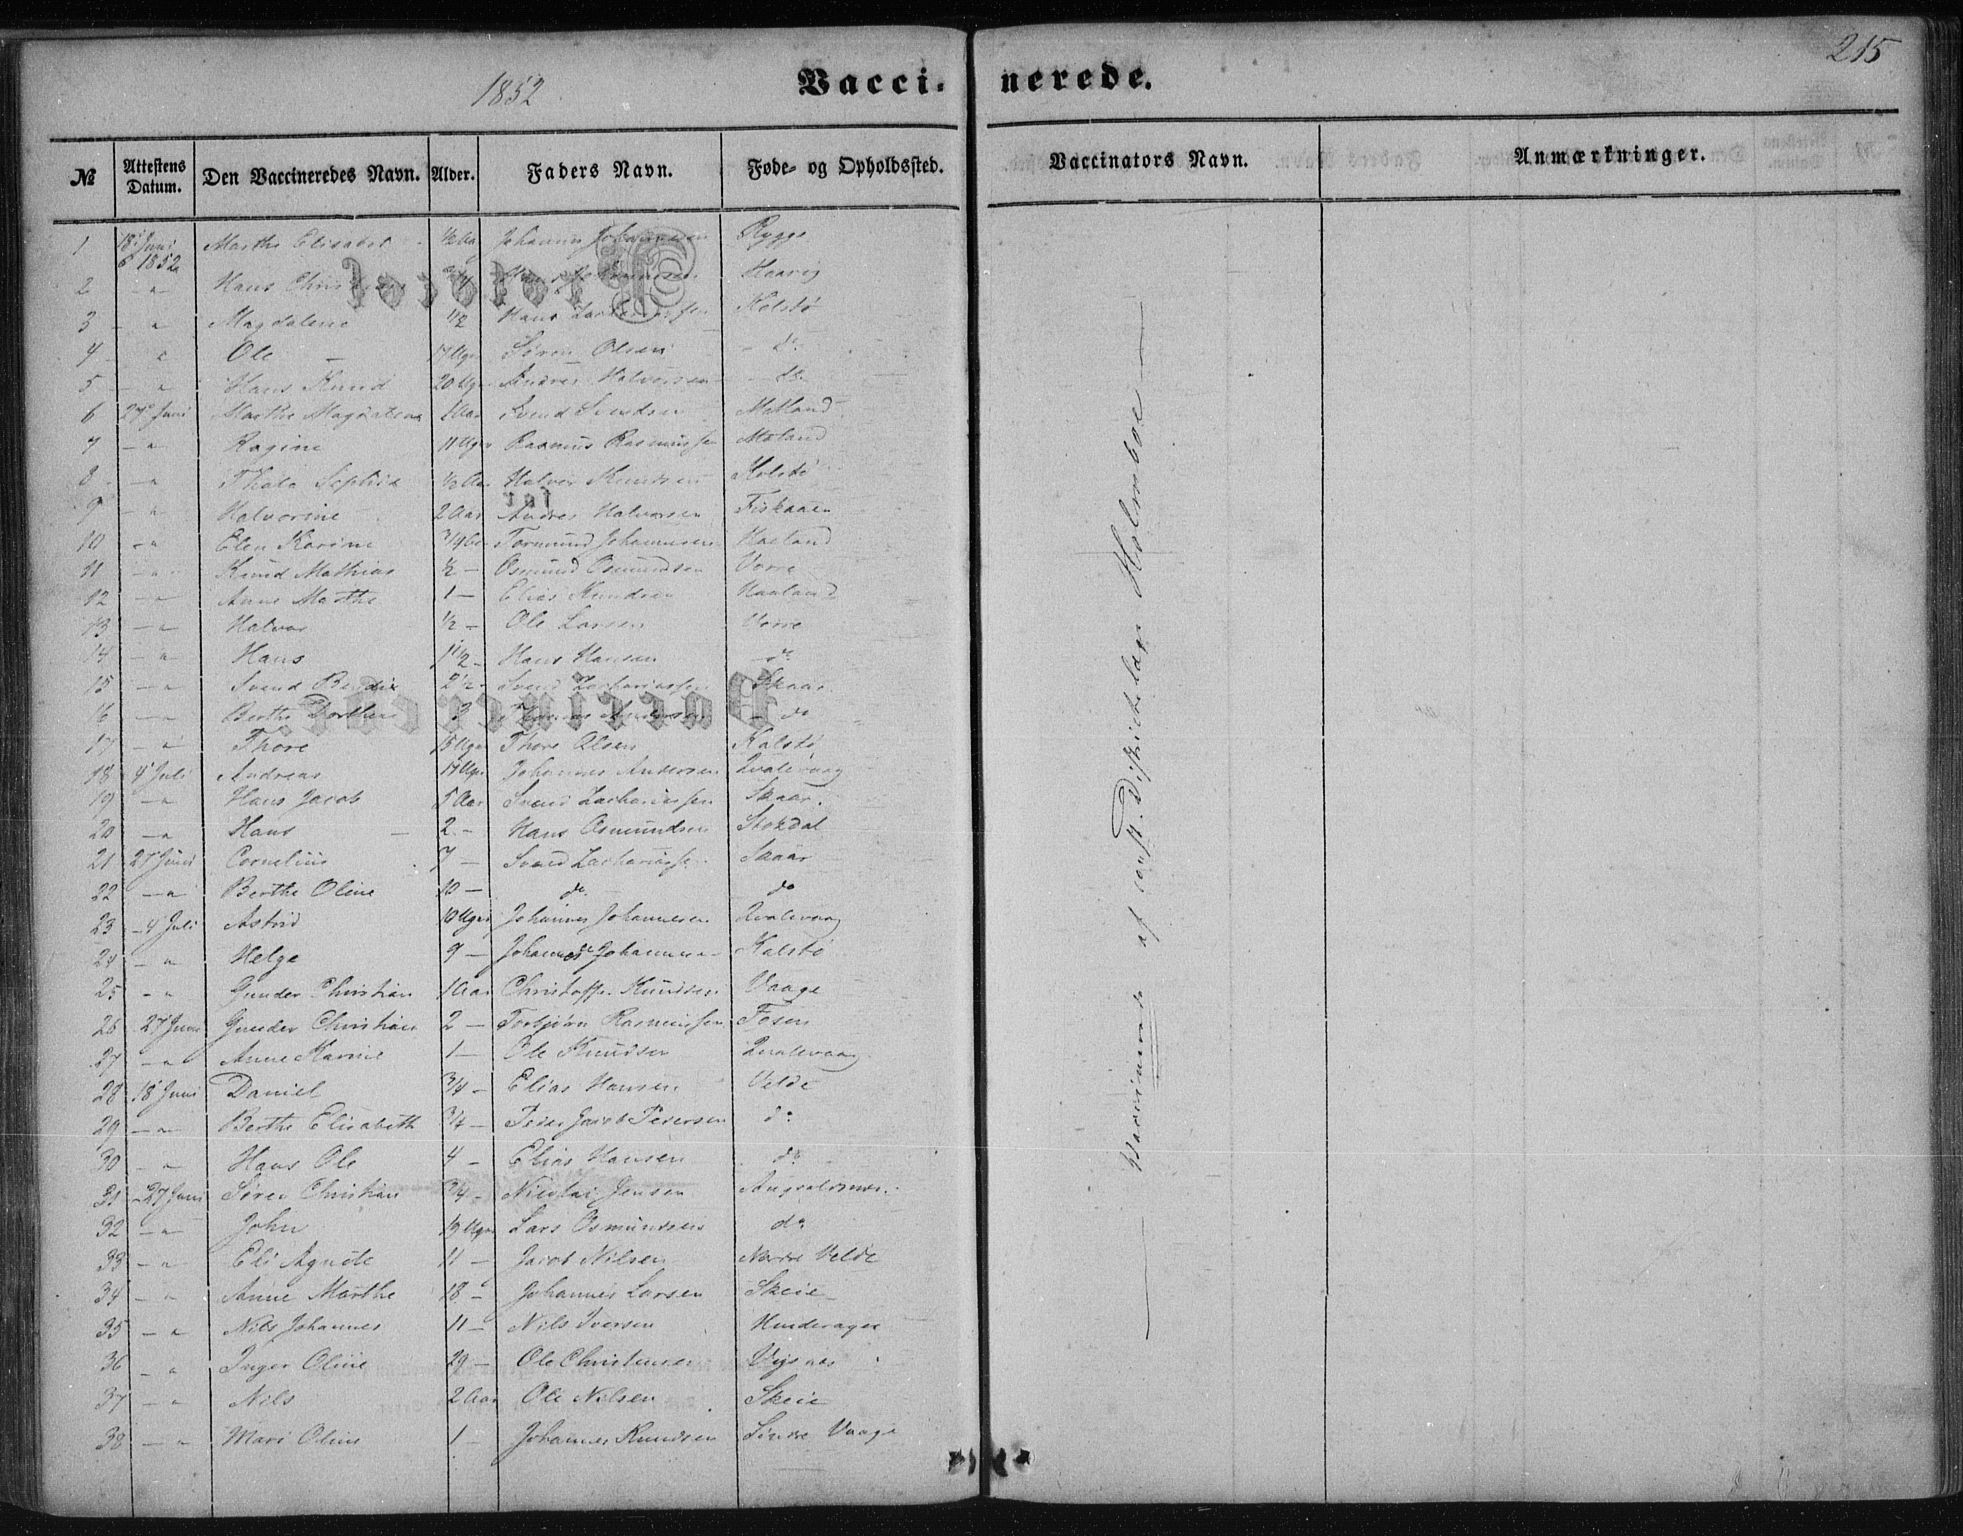 215
1852
Vacci-nerede.
№ Attestens Datum. Den Vaccineredes Navn. Alder. Faders Navn. Føde- og Opholdssted. Vaccinators Navn. Anmærkninger.
1 18 Juni 1852 Marthe Elisabet ½ Aar Johannes Johannesen Rygge
2 - " Hans Haavig
3 - " Magdalene 1½ Hans Kolstø
4 - " Ole 17 Uger Søren Olsen do
5 - " Hans Knud 20 Uger Andres Halvorsen do
6 27 Juni Marthe Magdalena 1 Aar Svend Svendsen Matland
7 - " Ragine 11 Uger Rasmus Rasmussen Moland
8 - " Thala Sophia ½ Aar Halvor Knudsen Kolstø
9 - " Halvorine 2 Aar Andres Halvorsen Fiskaaen
10 - " Elen Karine 3/4 Aar Tormund Johannesen Haaland
11 - " Knud Mathias ½ - Osmund Osmundsen Vorre
12 - " Anne Marthe 1 - Elias Knudsen Haaland
13 - " Halvor ½ - Ole Larsen Vorre
14 - " Hans 1½ - Hans Hansen do
15 - " Svend 2½ - Svend Zachariassen Skaar
16 - " Berthe Dorthea 3 do
17 - " Thore 15 Uger Thore Olsen Kalstø
18 4 Juli Andreas 17 Uger Johannes Andersen Qvalevaag
19 - " Hans Jacob 5 Aar Svend Zachariassen Skaar
20 - " Hans 2 - Hans Osmundsen Stokdal
21 27 Juni Cornelius 7 - Svend Zachariassen Skaar
22 - " Berthe Oline 10 - do do
23 - 4 Juli Astrid 10 Uger Johannes Johannesen Qvalevaag
24 - " Helge 9 - Johannes Johannesen Kalstø
25 - " Gunder Christian 1 Aar Christoffer Knudsen Vaage
26 27 Juni Gunder Christian 2 - Torbjørn Rasmussen Fosen
27 - " Anne Karine 1 - Ole Knudsen Qvalevaag
28 18 Juni Daniel 3/4 - Elias Hansen Velde
29 - " Berthe Elisabeth 3/4 - Peder Jacob Pedersen do
30 - " Hans Ole 4 - Elias Hansen do
31 - 27 Juni Søren Christian 3/4 - Nicolai Jensen
32 - " John 19 Uger Lars Osmundsen do
33 - " Eli Agnete 11 - Jacob Nilsen Nordre Velde
34 - " Anne Marthe 18 - Johannes Larsen Skeie
35 - " Nils Johannes 11 - Nils Iversen Hinderager
36 - " Inger Oline 29 - Ole Christensen Visnæs
37 - " Nils 2 Aar Ole Nilsen Skeie
38 - " Mari Oline 1 - Johannes Knudsen Søndre Vaage
Vaccinerede af const. Districtslæge Holmboe